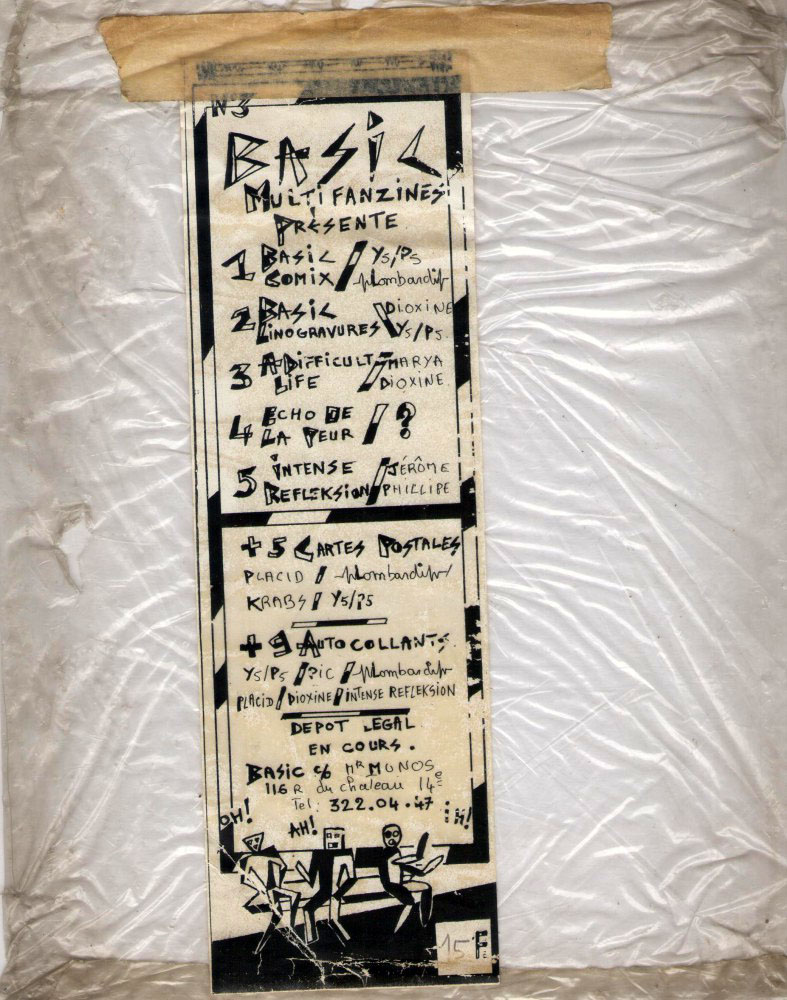 N°3
BASIC
MULTIFANZINES
PRÉSENTE
1 BASIC COMIX / Y5/P5 Lombardi
2 BASIC LINOGRAVURES \ DIOXINE Y5/P5.
3 A DIFFICULT LIFE / MARYA DIOXINE.
4 ECHO DE LA PEUR / ?
5 INTENSE REFLEKSION / JÉRÔME PHILLIPE
+ 5 CARTES POSTALES
PLACID / Lombardi /
KRABS / Y5/P5
+ 9 AUTOCOLLANTS.
Y5/P5 / PIC / Lombardi
PLACID / DIOXINE / INTENSE REFLEKSION
DEPOT LEGAL
EN COURS.
BASIC c/o MR MUNOS
116 R du chateau 14e
Tel: 322.04.47
OH!
AH!
15 F